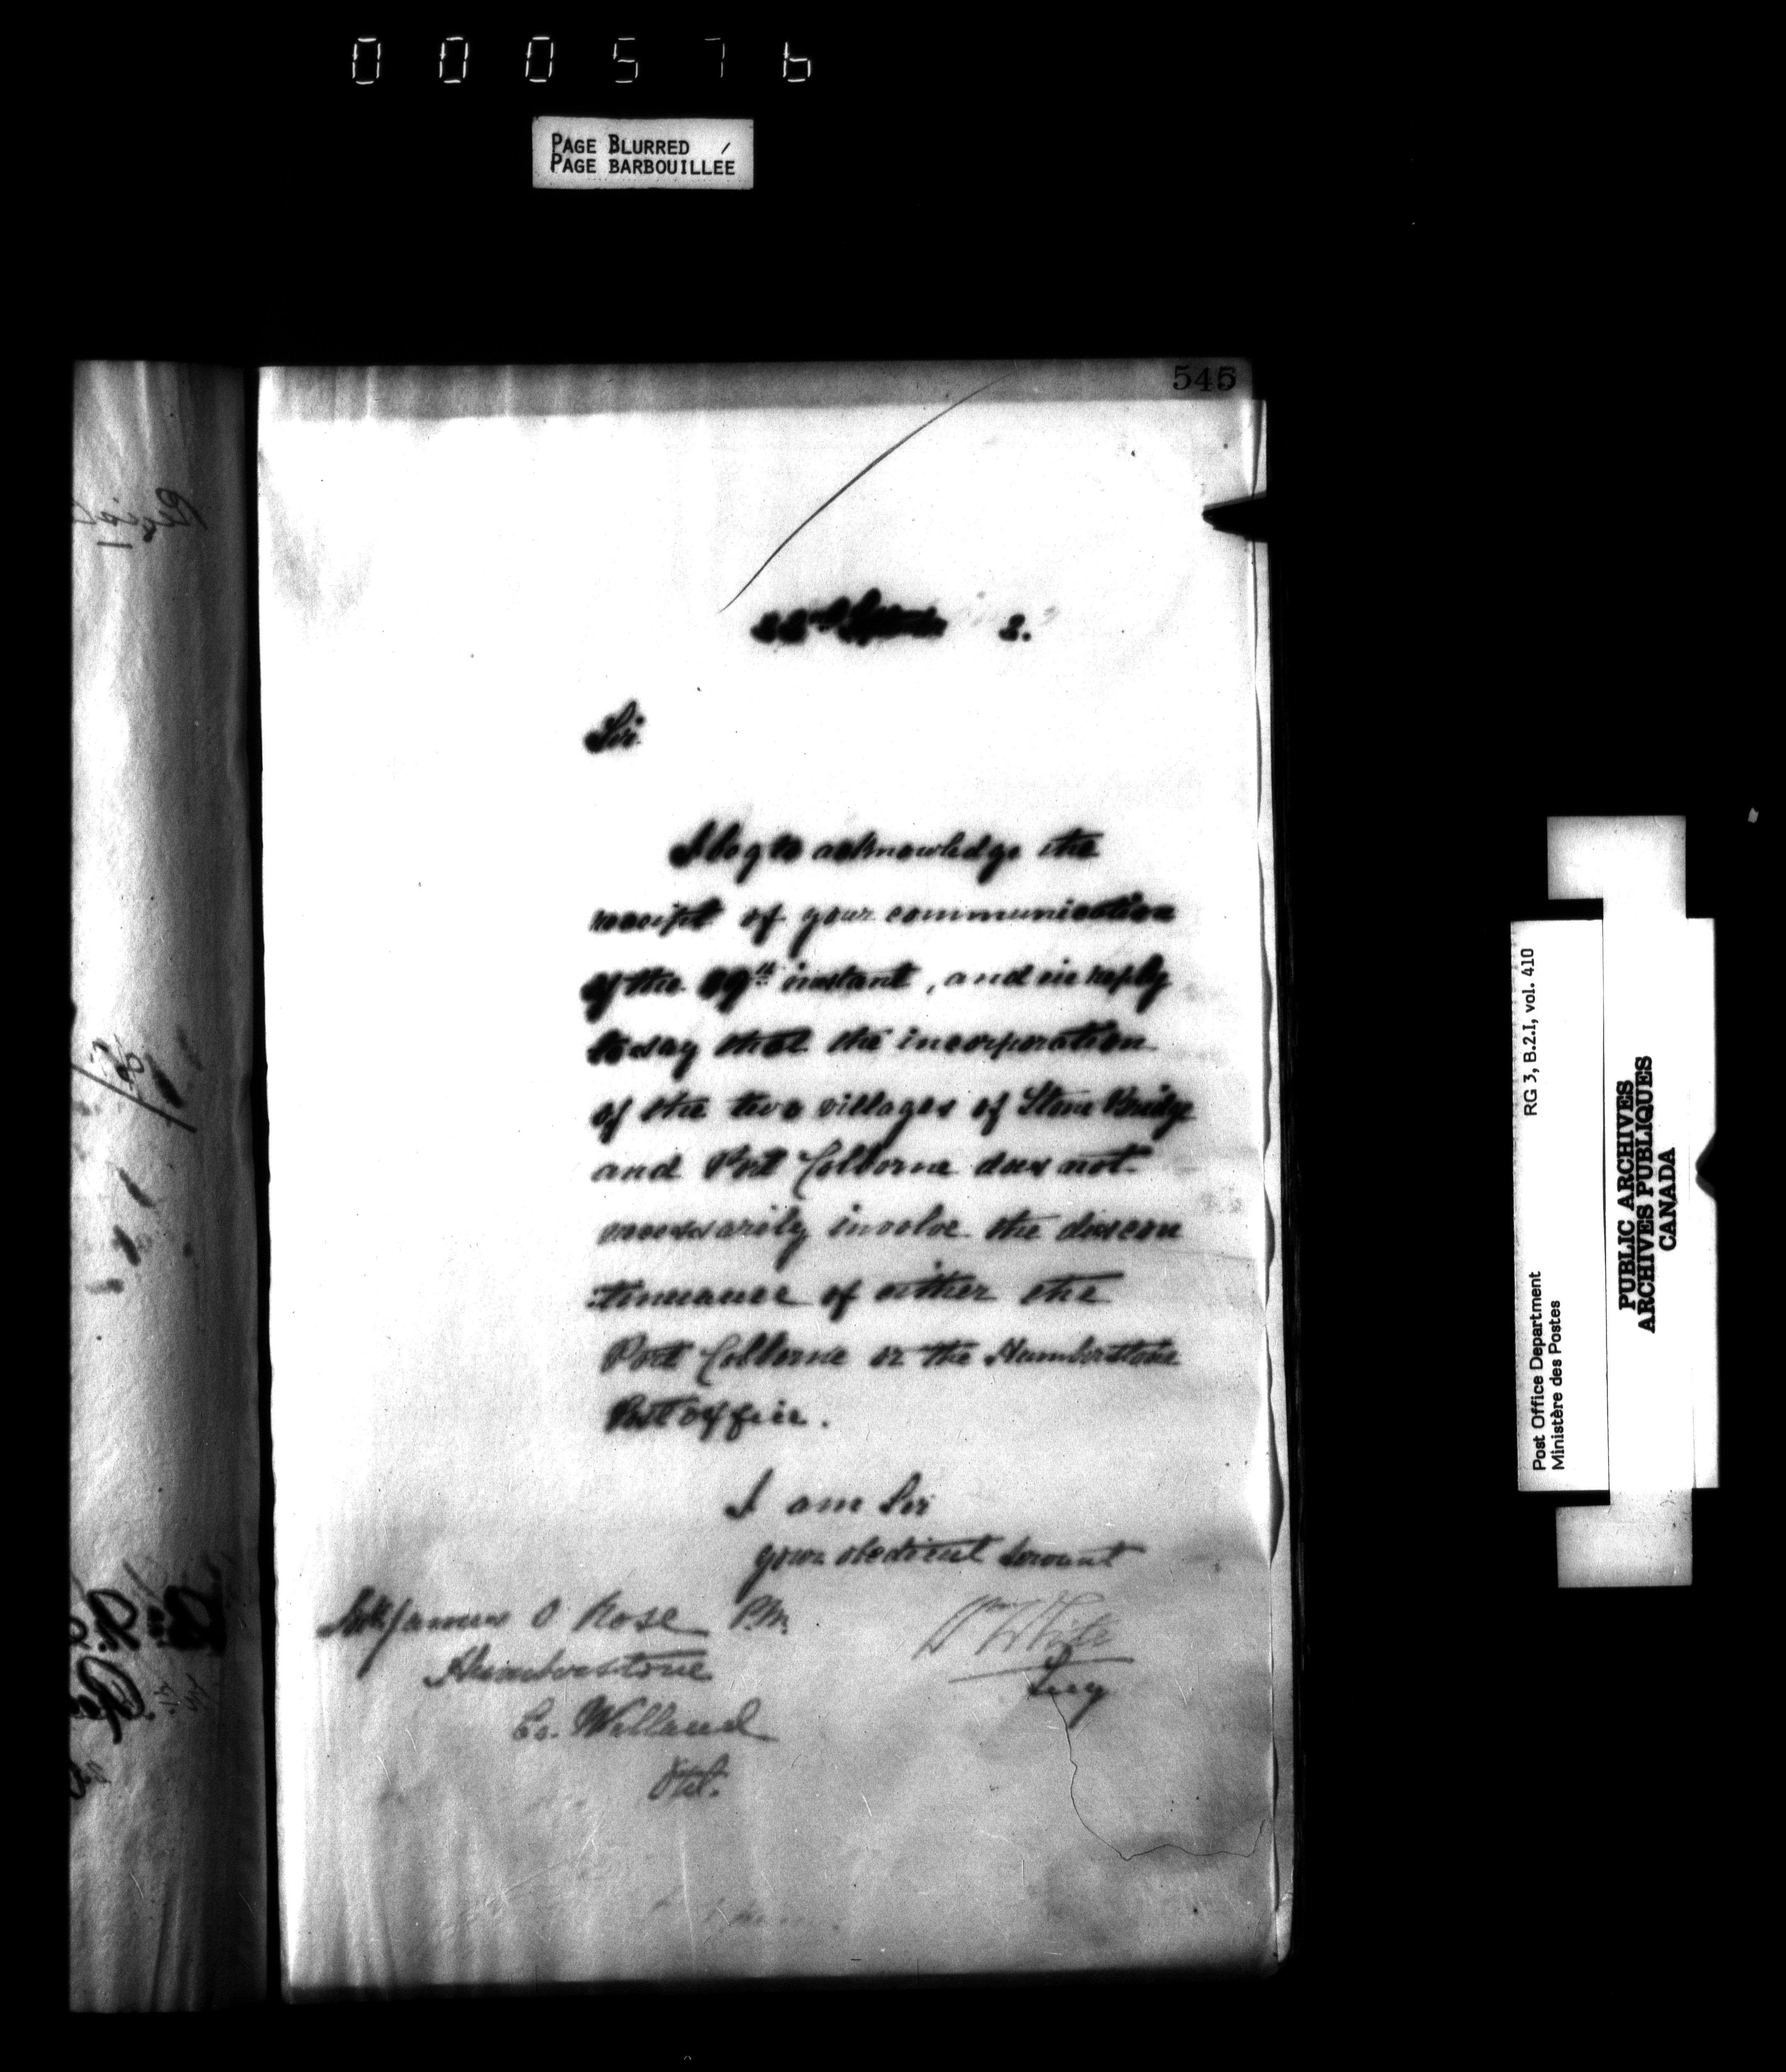 000576
PAGE BLURRED
PAGE BARBOUILLÉE
545
22nd 2.
Sir
I beg to acknowledge the
receipt of your communication
of the 19th instant, and in reply
to say that the incorporation
of the two villages of Stone Bridge
and Port Colborne does not
necessarily involve the discon
tinuance of either the
Port Colborne or the Humberstone
Post Office.
I am Sir
your obedient servant
Wm White
Secy
James O Rose P.M.
Humberstone
Co. Welland
Ont.
RG 3, B.2.I, vol. 410
Post Office Department
Ministère des Postes
PUBLIC ARCHIVES
ARCHIVES PUBLIQUES
CANADA